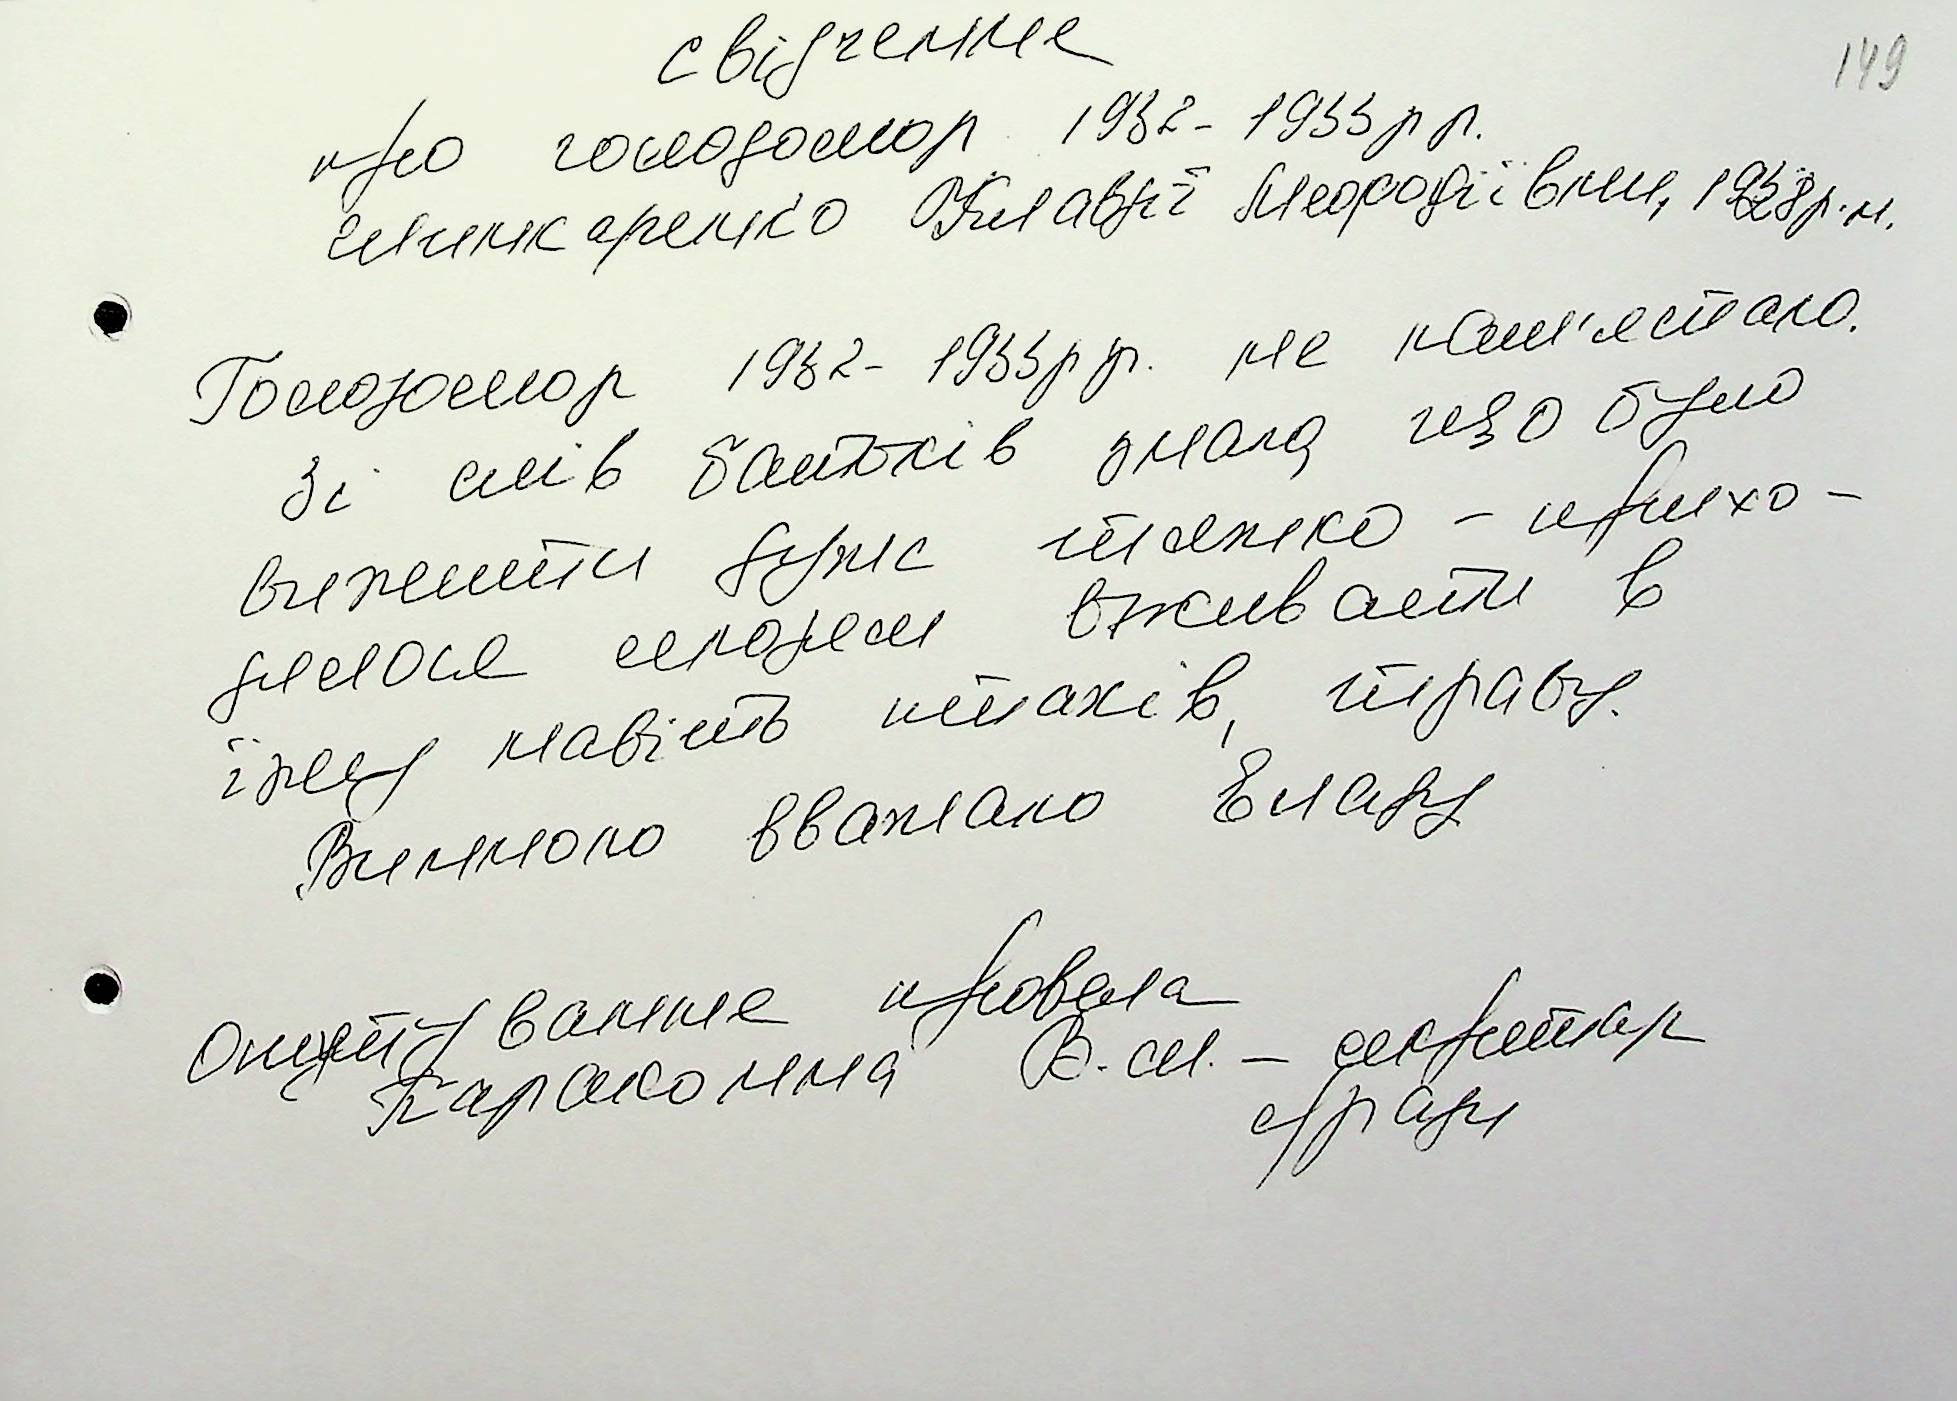 149
свідчення
про голодомор 1932-1933 рр.
шинкаренко Клавдії Мефодіївни, 1928 р.н.
Голодомор 1932-1933 рр. не пам'ятаю.
Зі слів батьків знала що було
вижити дуже тяжко - прихо-
дилося людям вживати в
їжу навіть птахів, траву.
Винною вважаю Владу
Опитування провела
В.М. - секретар
с/ради